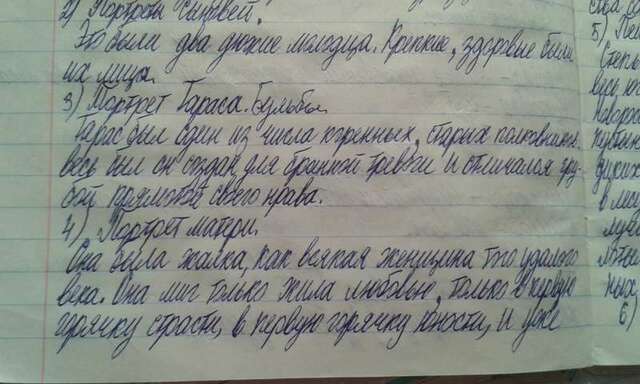 2) Портреты сыновей.
Это были два дюжие молодца. Крепкие, здоровые были
их лица.
3) Портрет Тараса Бульбы.
Тарас был один из числа коренных, старых полковников
весь был он создан для бранной тревоги и отличался гру-
бой прямотой своего нрава.
4) Портрет матери.
Она была жалка, как всякая женщина того удалого
века. Она миг только жила любовью, только в первую
горячку страсти, в первую горячку юности, и уже
ства
5)
Степь
весь
пустын
диких
в
ных,
6)